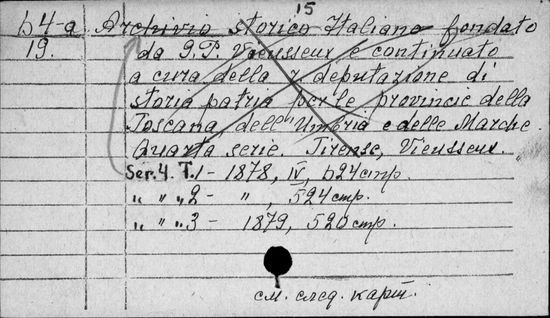 15
b4-a Archivio storico Italiano fondato
19. da G. P. Vieusseux e continuato
a cura della r. deputazione di
storia patria per le provincie della
Toscana, dell'Umbria e delle Marche.
Quarta serie. Firense, Vieusseux.
Ser. 4. T. 1 - 1878, IV, 524 стр.
„ „ „ 2 - „ , 524 стр.
„ „ „ 3 - 1879, 520 стр.
см. след. карт.